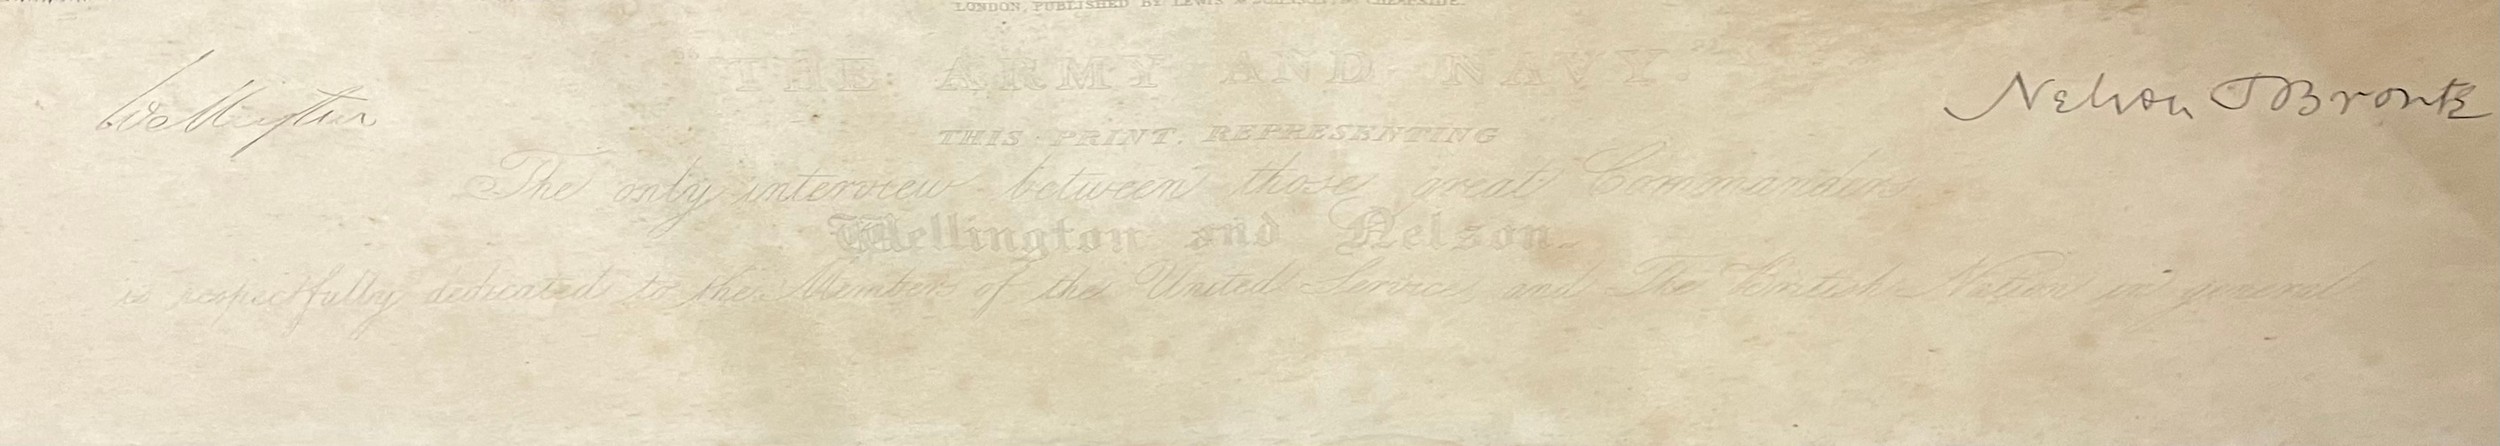 LONDON, PUBLISHED BY LEWIS & JOHNSON, CHEAPSIDE.
"THE ARMY AND NAVY."
Wellington
Nelson & Bronte
THIS PRINT, REPRESENTING
The only interview between those great Commanders
Wellington and Nelson.
is respectfully dedicated to the Members of the United Service, and The British Nation in general